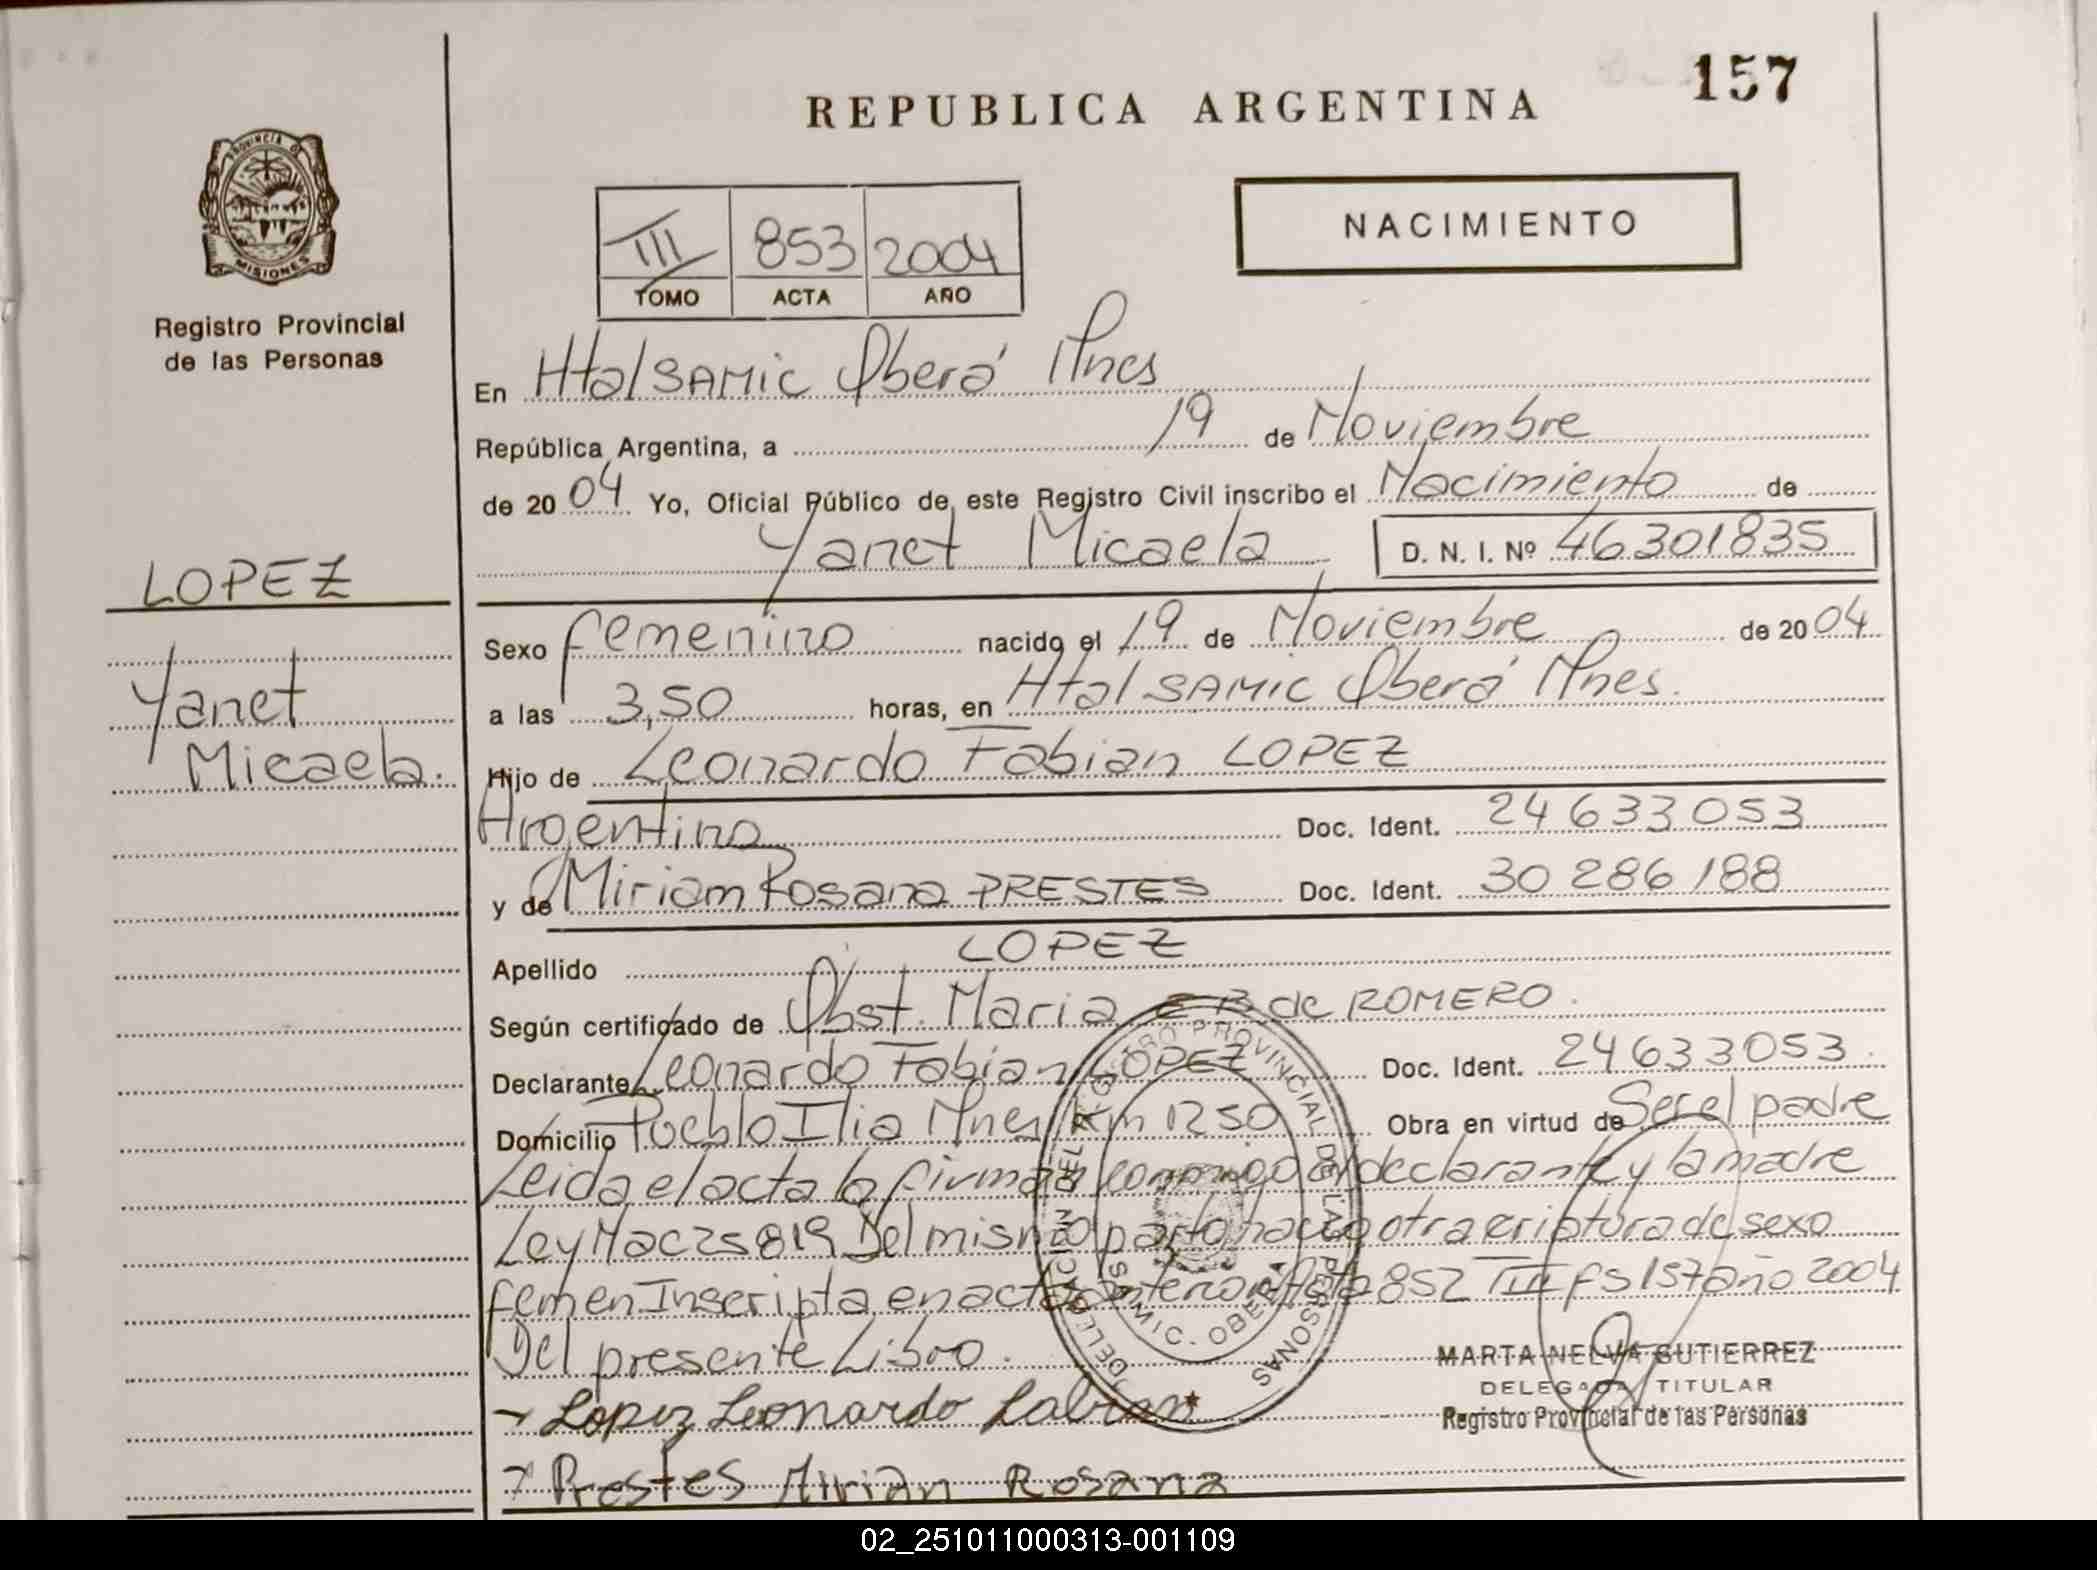 157
REPUBLICA ARGENTINA
PROVINCIA DE
MISIONES
Registro Provincial
de las Personas
NACIMIENTO
III 853 2004
TOMO ACTA AÑO
En Htal SAMIC Oberá Mnes
República Argentina, a 19 de Noviembre
de 2004 Yo, Oficial Público de este Registro Civil inscribo el Nacimiento de
Yanet Micaela D. N. I. Nº 46301835
LOPEZ
Yanet
Micaela.
Sexo femenino nacido el 19 de Noviembre de 2004
a las 3,50 horas, en Htal SAMIC Oberá Mnes.
Hijo de Leonardo Fabian LOPEZ
Argentino Doc. Ident. 24633053
y de Miriam Rosana PRESTES Doc. Ident. 30286188
Apellido LOPEZ
Según certificado de Obst. Maria E B de ROMERO.
Declarante Leonardo Fabian LOPEZ Doc. Ident. 24633053.
Domicilio Pueblo Ilia Mnes Km 1250 Obra en virtud de Ser el padre
Leida el acta la firman conmigo el declarante y la madre
Ley Nac 25819 Del mismo parto nacio otra criatura de sexo
femen Inscripta en acta Acta 852 TIII fs 157 año 2004
Del presente Libro.
Lopez Leonardo Fabian
Prestes Mirian Rosana
REGISTRO PROVINCIAL DE LAS PERSONAS
DELEGACION
SAMIC. OBERA
MARTA NELVA GUTIERREZ
DELEGADA TITULAR
Registro Provincial de las Personas
02_251011000313-001109